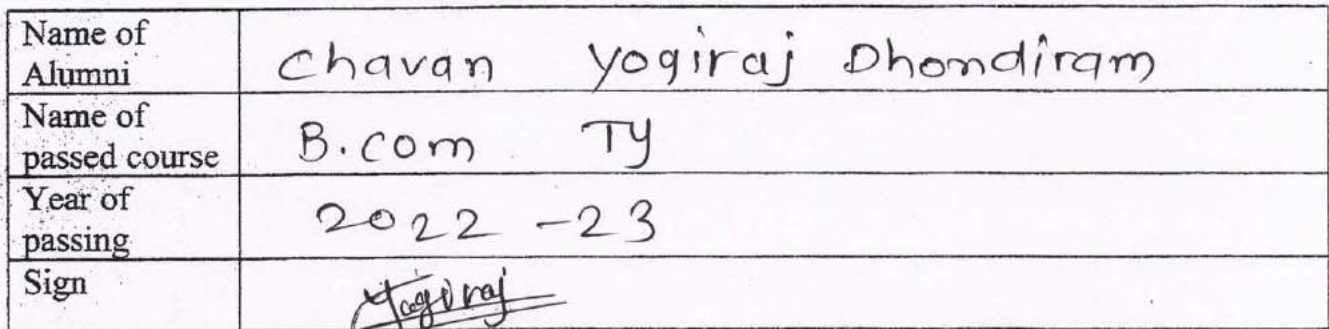 Name of
Alumni
Chavan Yogiraj Dhondiram
Name of
passed course
B.com TY
Year of
passing
2022 -23
Sign
Yogiraj